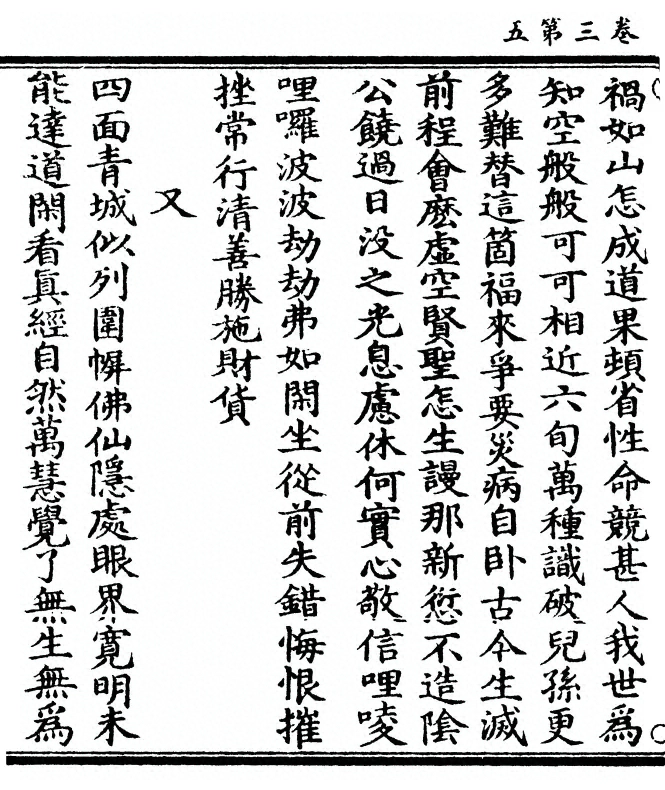 卷三第五
禍如山怎成道果頻省性命競甚人我世爲
知空般般可可相近六旬萬種識破兒孫更
多難替這箇福來爭要災病自卧古今生滅
前程會麽虛空賢聖怎生謾那新愆不造陰
公饒過日没之光息慮休何實心敬信哩唛
哩囉波波劫劫弗如閑坐從前失錯悔恨摧
挫常行清善勝施財貨
又
四面青城似列圍幈佛仙隱處眼界寛明未
能達道閑看眞經自然萬慧覺了無生無爲